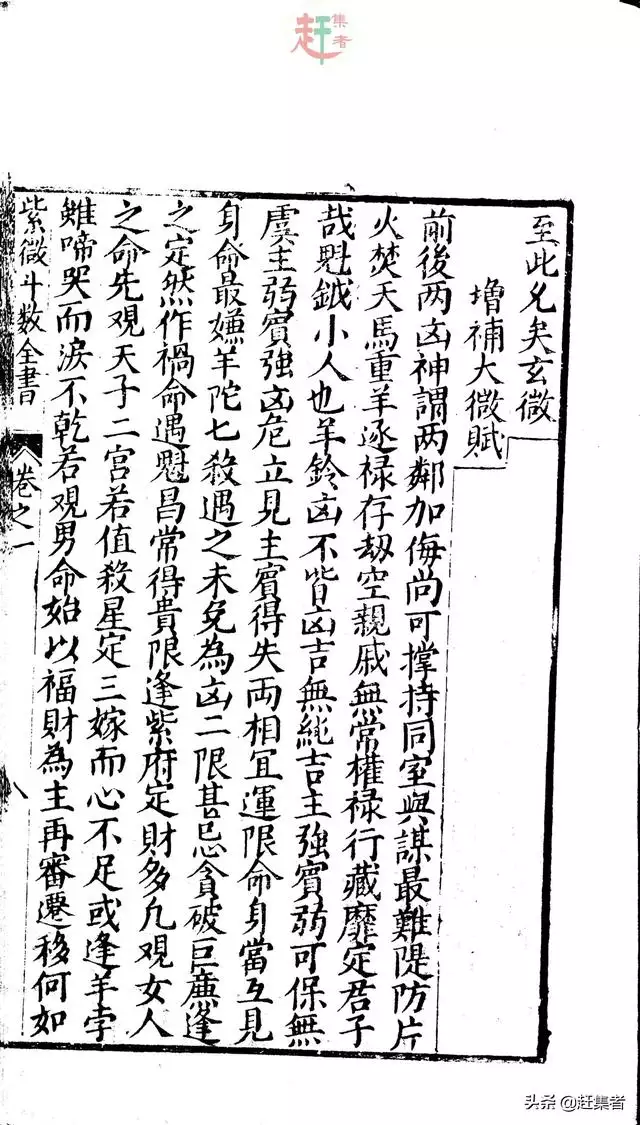 赶集者
至此兌矣玄微
増補太微賦
前後两凶神謂两鄰加侮尚可撑持同室與謀最難隄防片
火焚天馬重羊逐禄存劫空親戚無常權禄行藏靡定君子
哉魁鉞小人也羊鈴凶不皆凶吉無純吉主強賓弱可保無
虞主弱賓強凶危立見主賓得失两相宜運限命身當互見
身命最嫌羊陀七殺遇之未免為凶二限甚忌貪破巨廉逢
之定然作禍命遇魁昌常得貴限逢紫府定財多凢观女人
之命先观天子二宮若值殺星定三嫁而心不足或逢羊孛
雖啼哭而涙不乾若观男命始以福財為主再審遷移何如
紫微斗数全書 卷之一
头条 @赶集者